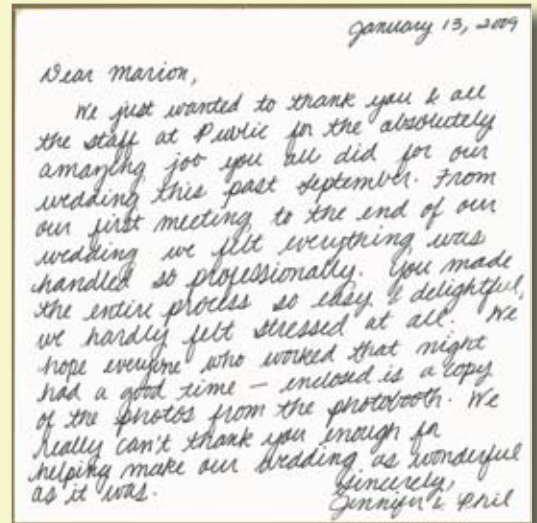 January 13, 2009
Dear Marion,
We just wanted to thank you & all
the staff at Public for the absolutely
amazing job you all did for our
wedding this past September. From
our first meeting to the end of our
wedding we felt everything was
handled so professionally. You made
the entire process so easy & delightful,
we hardly felt stressed at all. We
hope everyone who worked that night
had a good time — enclosed is a copy
of the photos from the photobooth. We
really can't thank you enough for
helping make our wedding as wonderful
as it was. Sincerely,
Jennifer & Phil